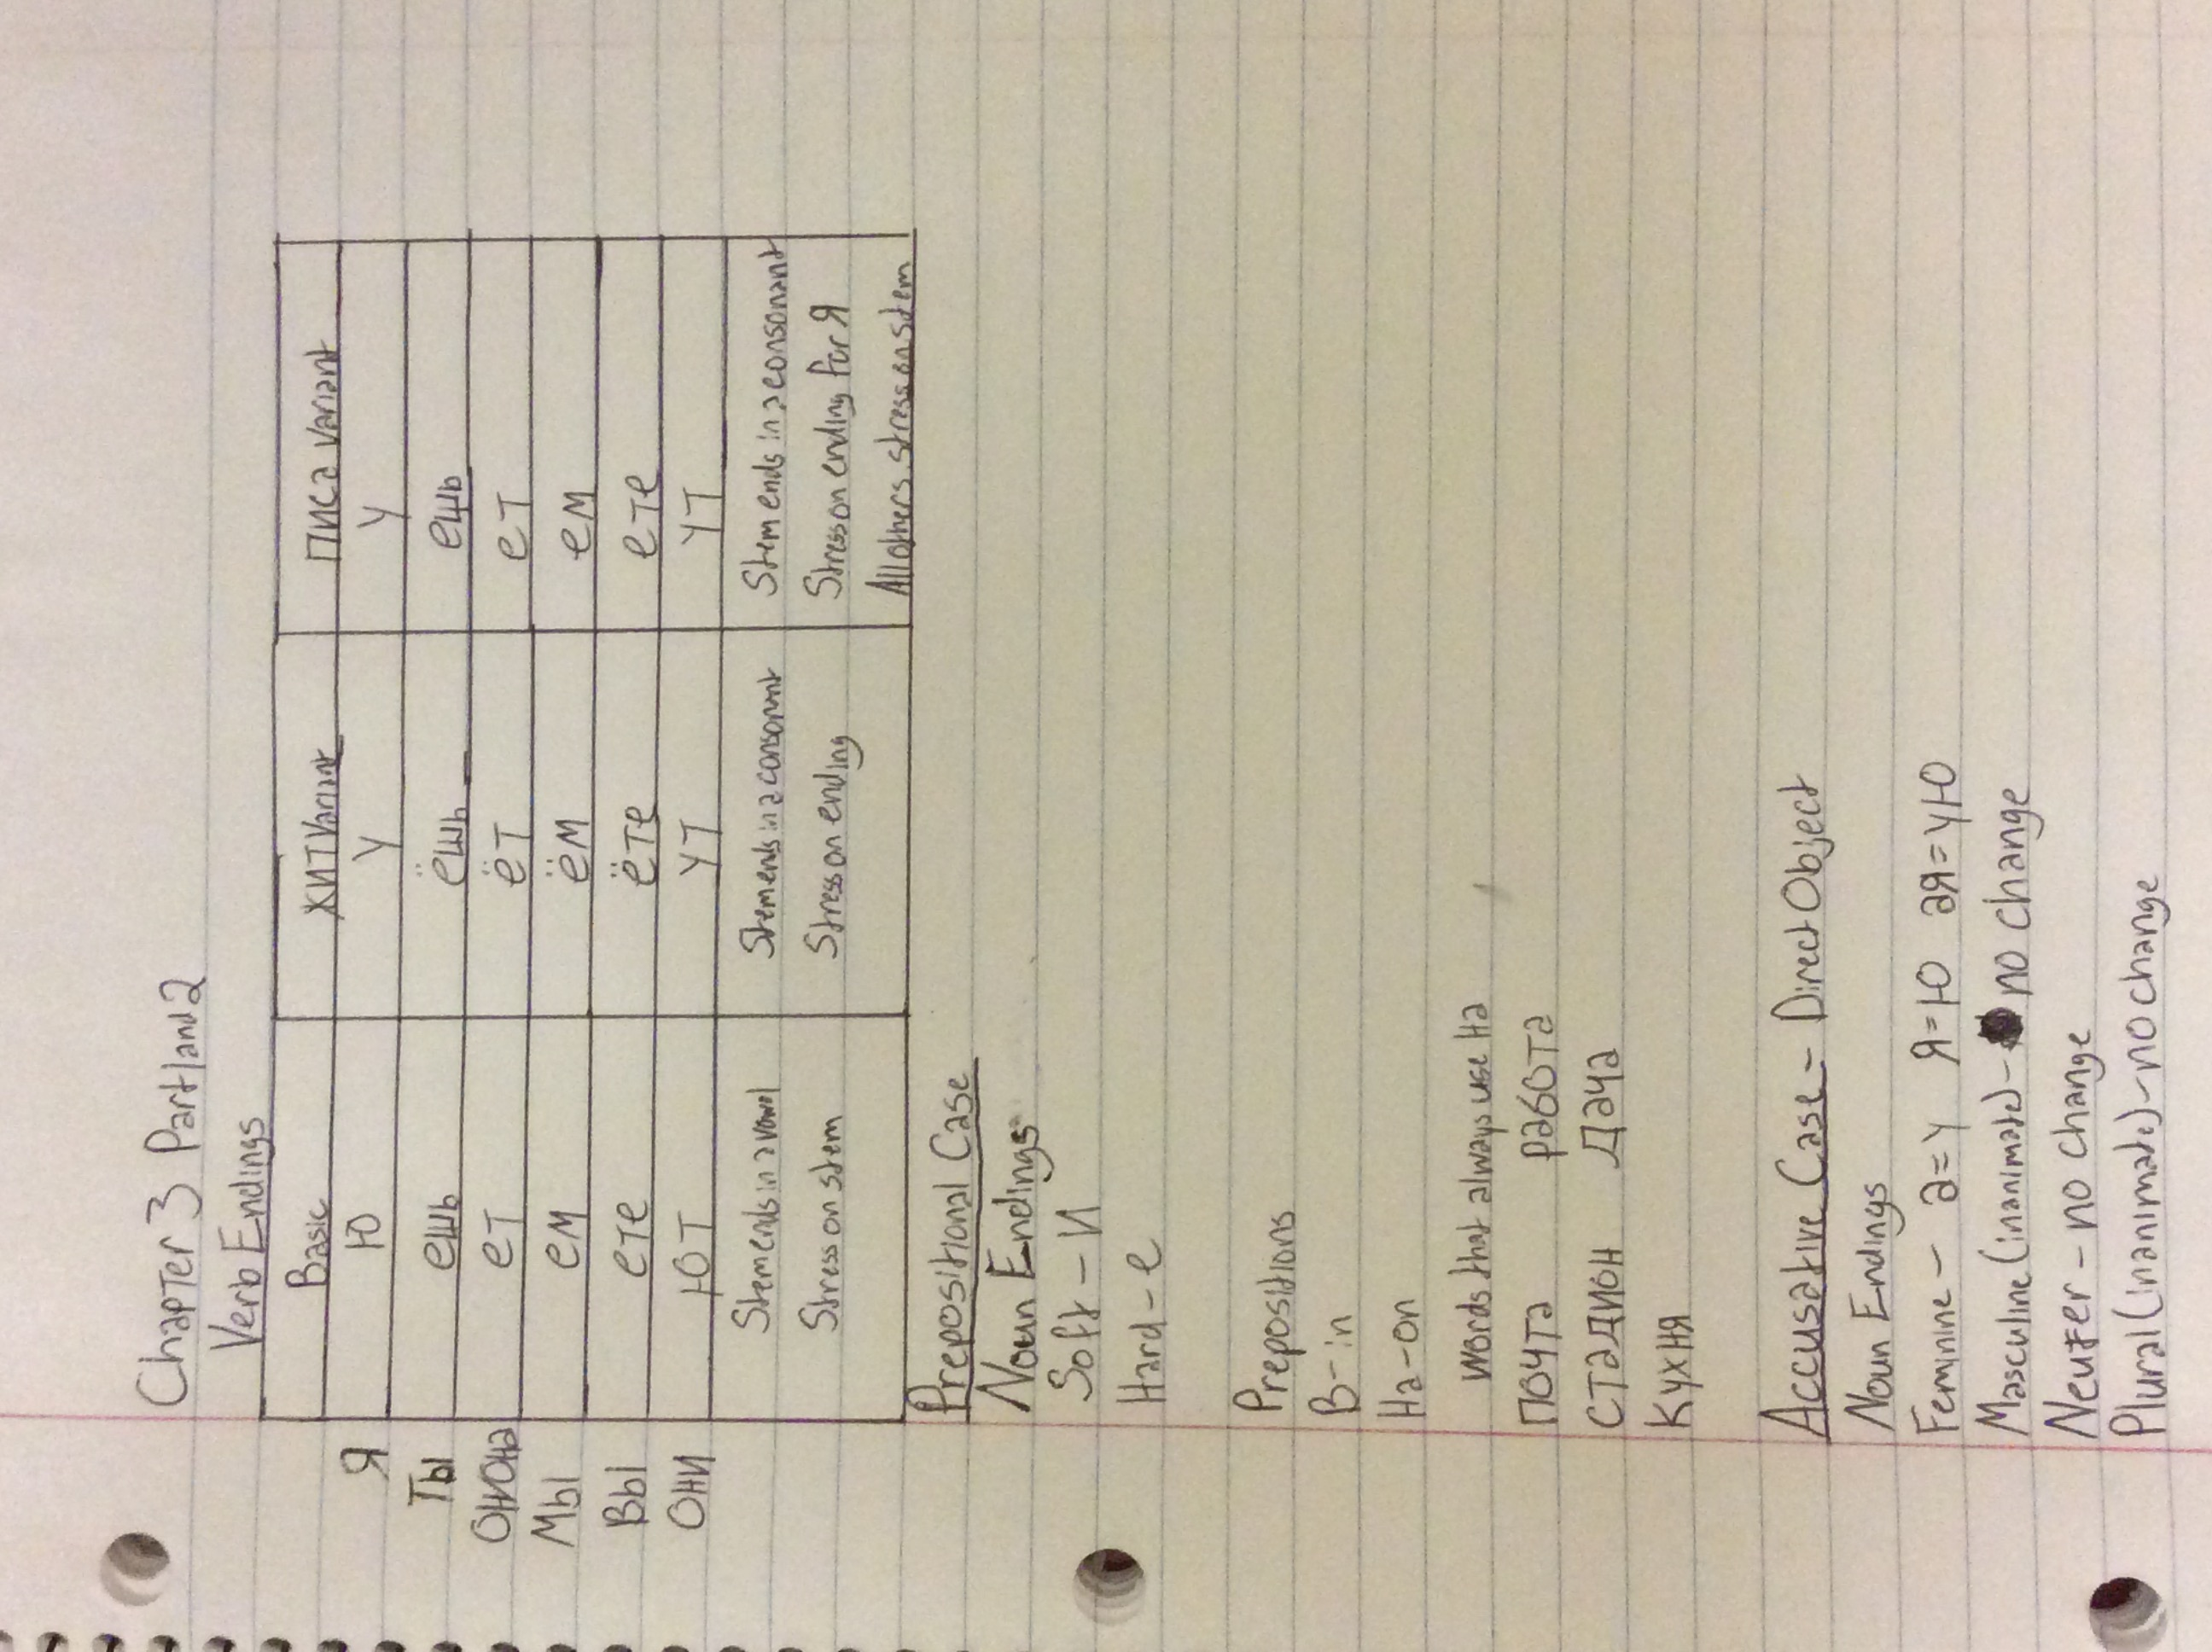 Chapter 3 Part 1 and 2
Verb Endings
Basic ЖИТ Variant Писа Variant
Я Ю У У
Ты ешь ёшь ешь
ОН/ОНа ет ёт ет
Мы ем ём ем
Вы ете ёте ете
ОНИ ЮТ УТ УТ
Stem ends in a vowel Stem ends in a consonant Stem ends in a consonant
Stress on stem Stress on ending Stress on ending for Я
All others stress on stem
Prepositional Case
Noun Endings
Soft - И
Hard - е
Prepositions
В - in
На - on
Words that always use На
Почта работа
стадион Дача
Кухня
Accusative Case - Direct Object
Noun Endings
Feminine - а=у я=ю ая=ую
Masculine (inanimate) - no change
Neuter - no change
Plural (inanimate) - no change